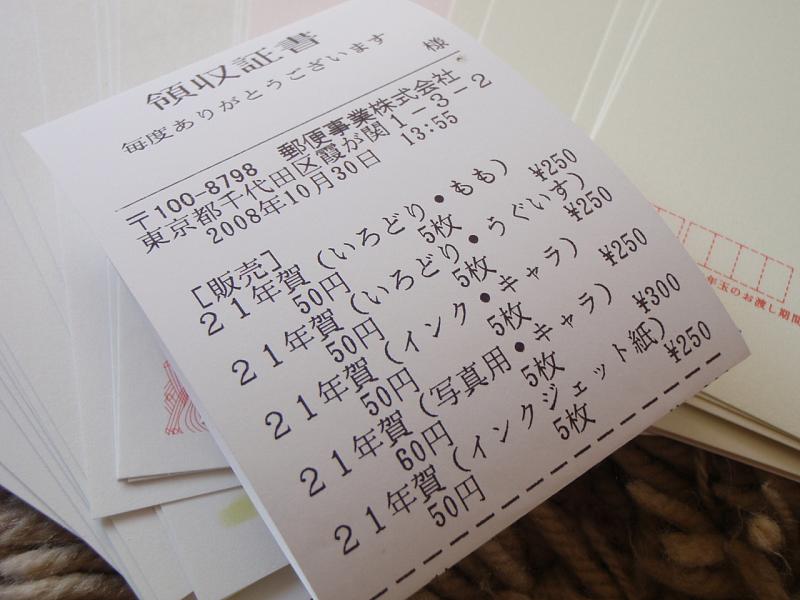 領収証書
毎度ありがとうございます
様
郵便事業株式会社
〒100-8798
東京都千代田区霞が関1-3-2
2008年10月30日 13:55
[販売]
21年賀(いろどり・もも)
50円 5枚 ¥250
21年賀(いろどり・うぐいす)
50円 5枚 ¥250
21年賀(インク・キャラ)
50円 5枚 ¥250
21年賀(写真用・キャラ)
60円 5枚 ¥300
21年賀(インクジェット紙)
50円 5枚 ¥250
年玉のお渡し期間